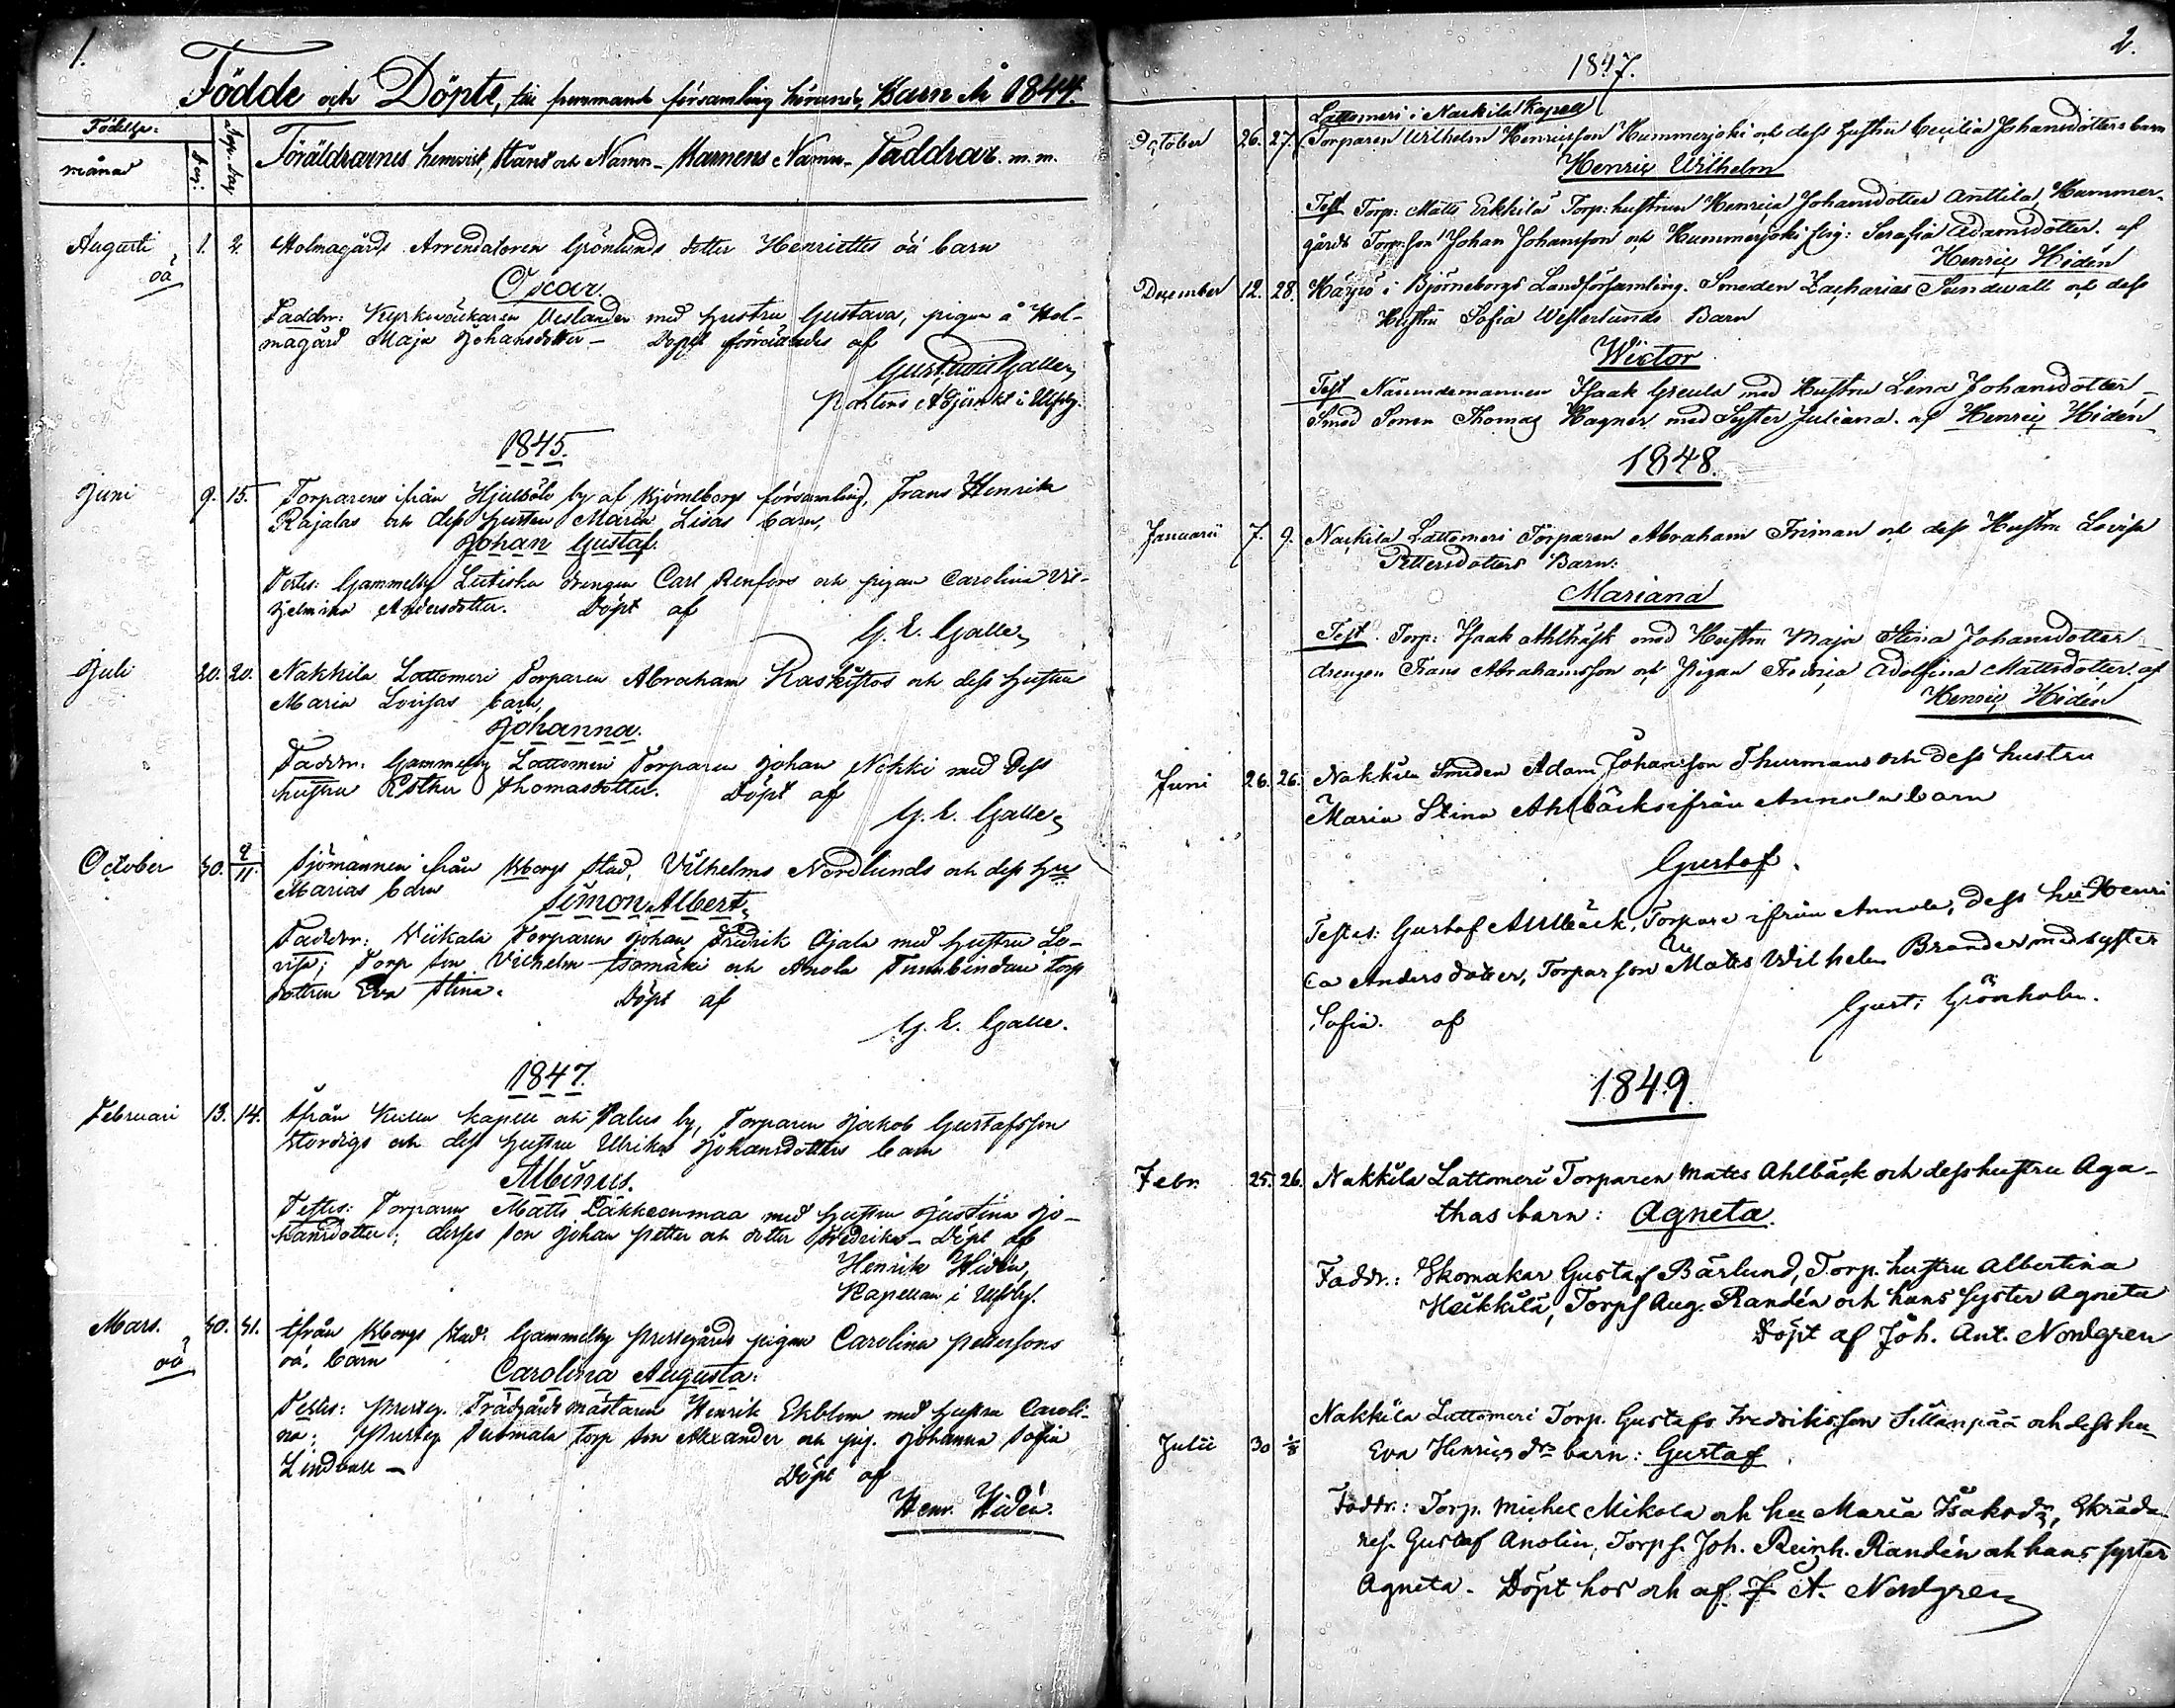 1.
Födde och Döpte, till främmande församling hörande, Barn År 1844.
Födelse- Döp. dag
månad dag. Föräldrarnes hemvist, Stånd och Namn - Barnens Namn - Faddrar m. m.
Augusti 1. 2. Holmagårds Arrendatoren Grönlunds dotter Henriettes oä barn
oä
Oscar.
Faddr: Kyrkovöktaren Veslander med hustru Gustava, pigan å Hol-
magård Maja Johansdotter - Döpt förrättades af
Galle,
Pastors Adjunkt i Ulfsby.
1845.
Juni 9. 15. Torparens ifrån by af Björneborgs församling, Frans Henrik
Rajalas och dess hustru Maria Lisas barn,
Johan Gustaf.
Testes: Gammelby drengen Carl Renfors och pigan Carolina Vil-
helmina Andersdotter. Döpt af
G. E. Galle,
Juli 20. 20. Nakkila Lattomeri Torparen Abraham och dess hustru
Maria Lovisas barn,
Johanna.
Faddrr: Gammelby Lattomeri Torparen Johan Nokki med dess
hustru Esther Thomasdotter. Döpt af
G. E. Galle,
October 30. 9/11. Sjömannen från Bborgs stad, Vilhelms Nordlunds och dess hu
Marias barn
Simon Albert,
Faddrr: Viikala Torparen Johan Fredrik Ojala med hustru Lo-
visa; Torp son Vilhelm Isomäki och Anola Tunnbindari torp
dottren Eva Stina. Döpt af
G. E. Galle.
1847.
Februari 13. 14. Ifrån Kulla kapell och Palus by, Torparen Jakob Gustafsson
och dess hustru Ulrika Johansdotters barn
Albinus.
Testes: Torparen Matts Läkkeenmaa med hustru Justina Jo-
hansdotter; desses son Johan Petter och dotter Fredrika - Döpt af
Henrik Hidén,
Kapellan i Ulfsby.
Mars. 30. 31. Ifrån Bborgs stad: Gammelby prestgårds pigan Carolina Pettersons
oä oä. barn
Carolina Augusta.
Testes: prestg. Trädgårdsmästaren Henrik Ekblom med hustru Caroli-
na; Prestg torp son Alexander och pig. Johanna Sofia
Lindvall - Döpt af
Henr. Hidén.
2.
1847.
Lattomeri i Nackila Kapell
October 26. 27. Torparen Wilhelm Henricsson Hummerjoki och dess hustru Cecilia Johansdotters barn
Henric Wilhelm
Test Torp: Matts Erkkilä Torp: hustrun Henrica Johansdotter Anttila, Hummer-
gårds Torp: son Johan Johansson och Hummerjoki pig: Serafia Adamsdotter. af
Henric Hidén
December 12. 28. i Björneborgs Landsförsamling. Smeden Zacharias Sundwall och dess
Hustru Sofia Westerlunds Barn
Wictor
Test Nämndemannen Isaak Greula med Hustru Lena Johansdotter -
Smed Sonen Thomas Hagner med Syster Juliana. af Henric Hidén
1848.
Januarii 7. 9. Nackila Lattomeri Torparen Abraham Friman och dess Hustru Lovisa
Pettersdotters Barn:
Mariana
Test. Torp: Isaak Ahlbäck med Hustru Maja Stina Johansdotter -
drengen Frans Abrahamsson och Pigan Fredrica Adolfina Mattsdotter. af
Henric Hidén
Juni 26. 26. Nakkila Smeden Adam Johansson Thurmans och dess hustru
Maria Stina Ahlbäcks ifrån Annola barn
Gustaf.
Testes: Gustaf Ahlbäck, Torpare ifrån Annola, dess hu Henri
ca Andersdotter, Torpar son Matts Wilhelm Brander med syster
Sofia. af Gust: Grönholm.
1849.
Febr. 25. 26. Nakkila Lattomeri Torparen Matts Ahlbäck och dess hustru Aga-
thas barn: Agneta.
Faddr.: Skomakar Gustaf Bärlund, Torp. hustru Albertina
Heikkilä, Torps Aug. Randén och hans syster Agneta
Döpt af Joh. Ant. Nordgren
Julii 30 1/8 Nakkila Lattomeri Torp. Gustafs Fredrikssson Sillanpää och dess hu
Eva Henricsdrs barn: Gustaf
Faddr.: Torp. Michel Mikola och hu Maria Isaksdr, Skräda-
Gustaf Anolin, Torp s. Joh. Reinh. Randén och hans syster
Agneta. Döpt hos och af J. A. Nordgren